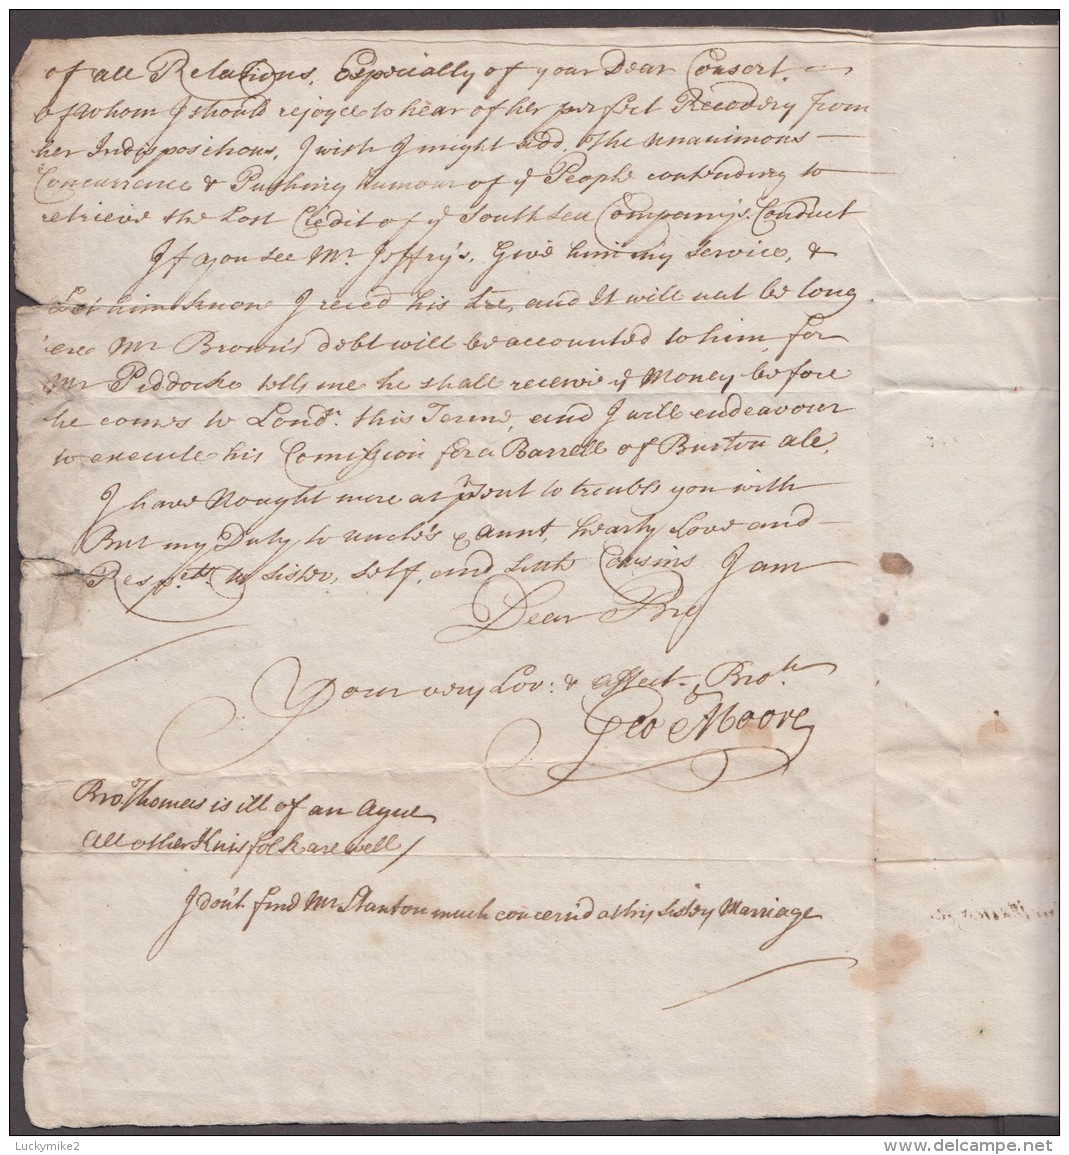 of all Relations, Especially of your Dear Consort.
of whom I should rejoyce to hear of her perfect Recovery from
her Indispositions, I wish I might add. The unanimous
Concurrence & Pushing humour of ye People contending to
retrieve the Lost Credit of ye South Sea Company's Conduct
If you see Mr. Jeffry's, Give him my service, &
Let him know I reced his Lre, and It will not be long
ere Mr Brown's debt will be accounted to him, for
Mr Piddocke tells me he shall receive ye Money before
he comes to Londn. this Terme, and I will endeavour
to execute his Comission for a Barrell of Burton ale,
I have Nought more at prsent to trouble you with
But my Duty to Uncle's & Aunt, hearty Love and
Respects to Sister, self, and little Cousins I am
Dear Bro
Your very Lov: & affect. Broth
Geo Moore
Bro. Thomas is ill of an Ague
All other Kinsfolk are well/
I don't find Mr Stanton much concern'd at his Sistrs Marriage
Luckymike2
www.delcampe.net